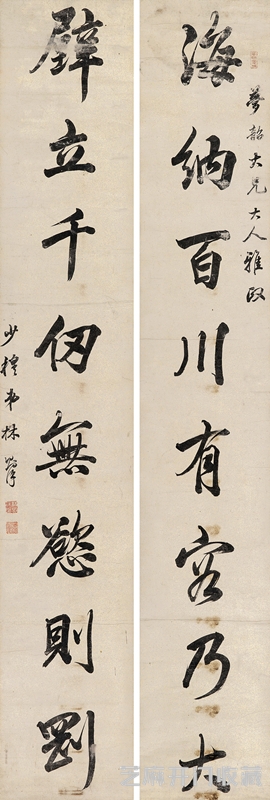 海納百川有容乃大
夢韶大兄大人雅政
壁立千仞無慾則剛
少穆弟林則徐